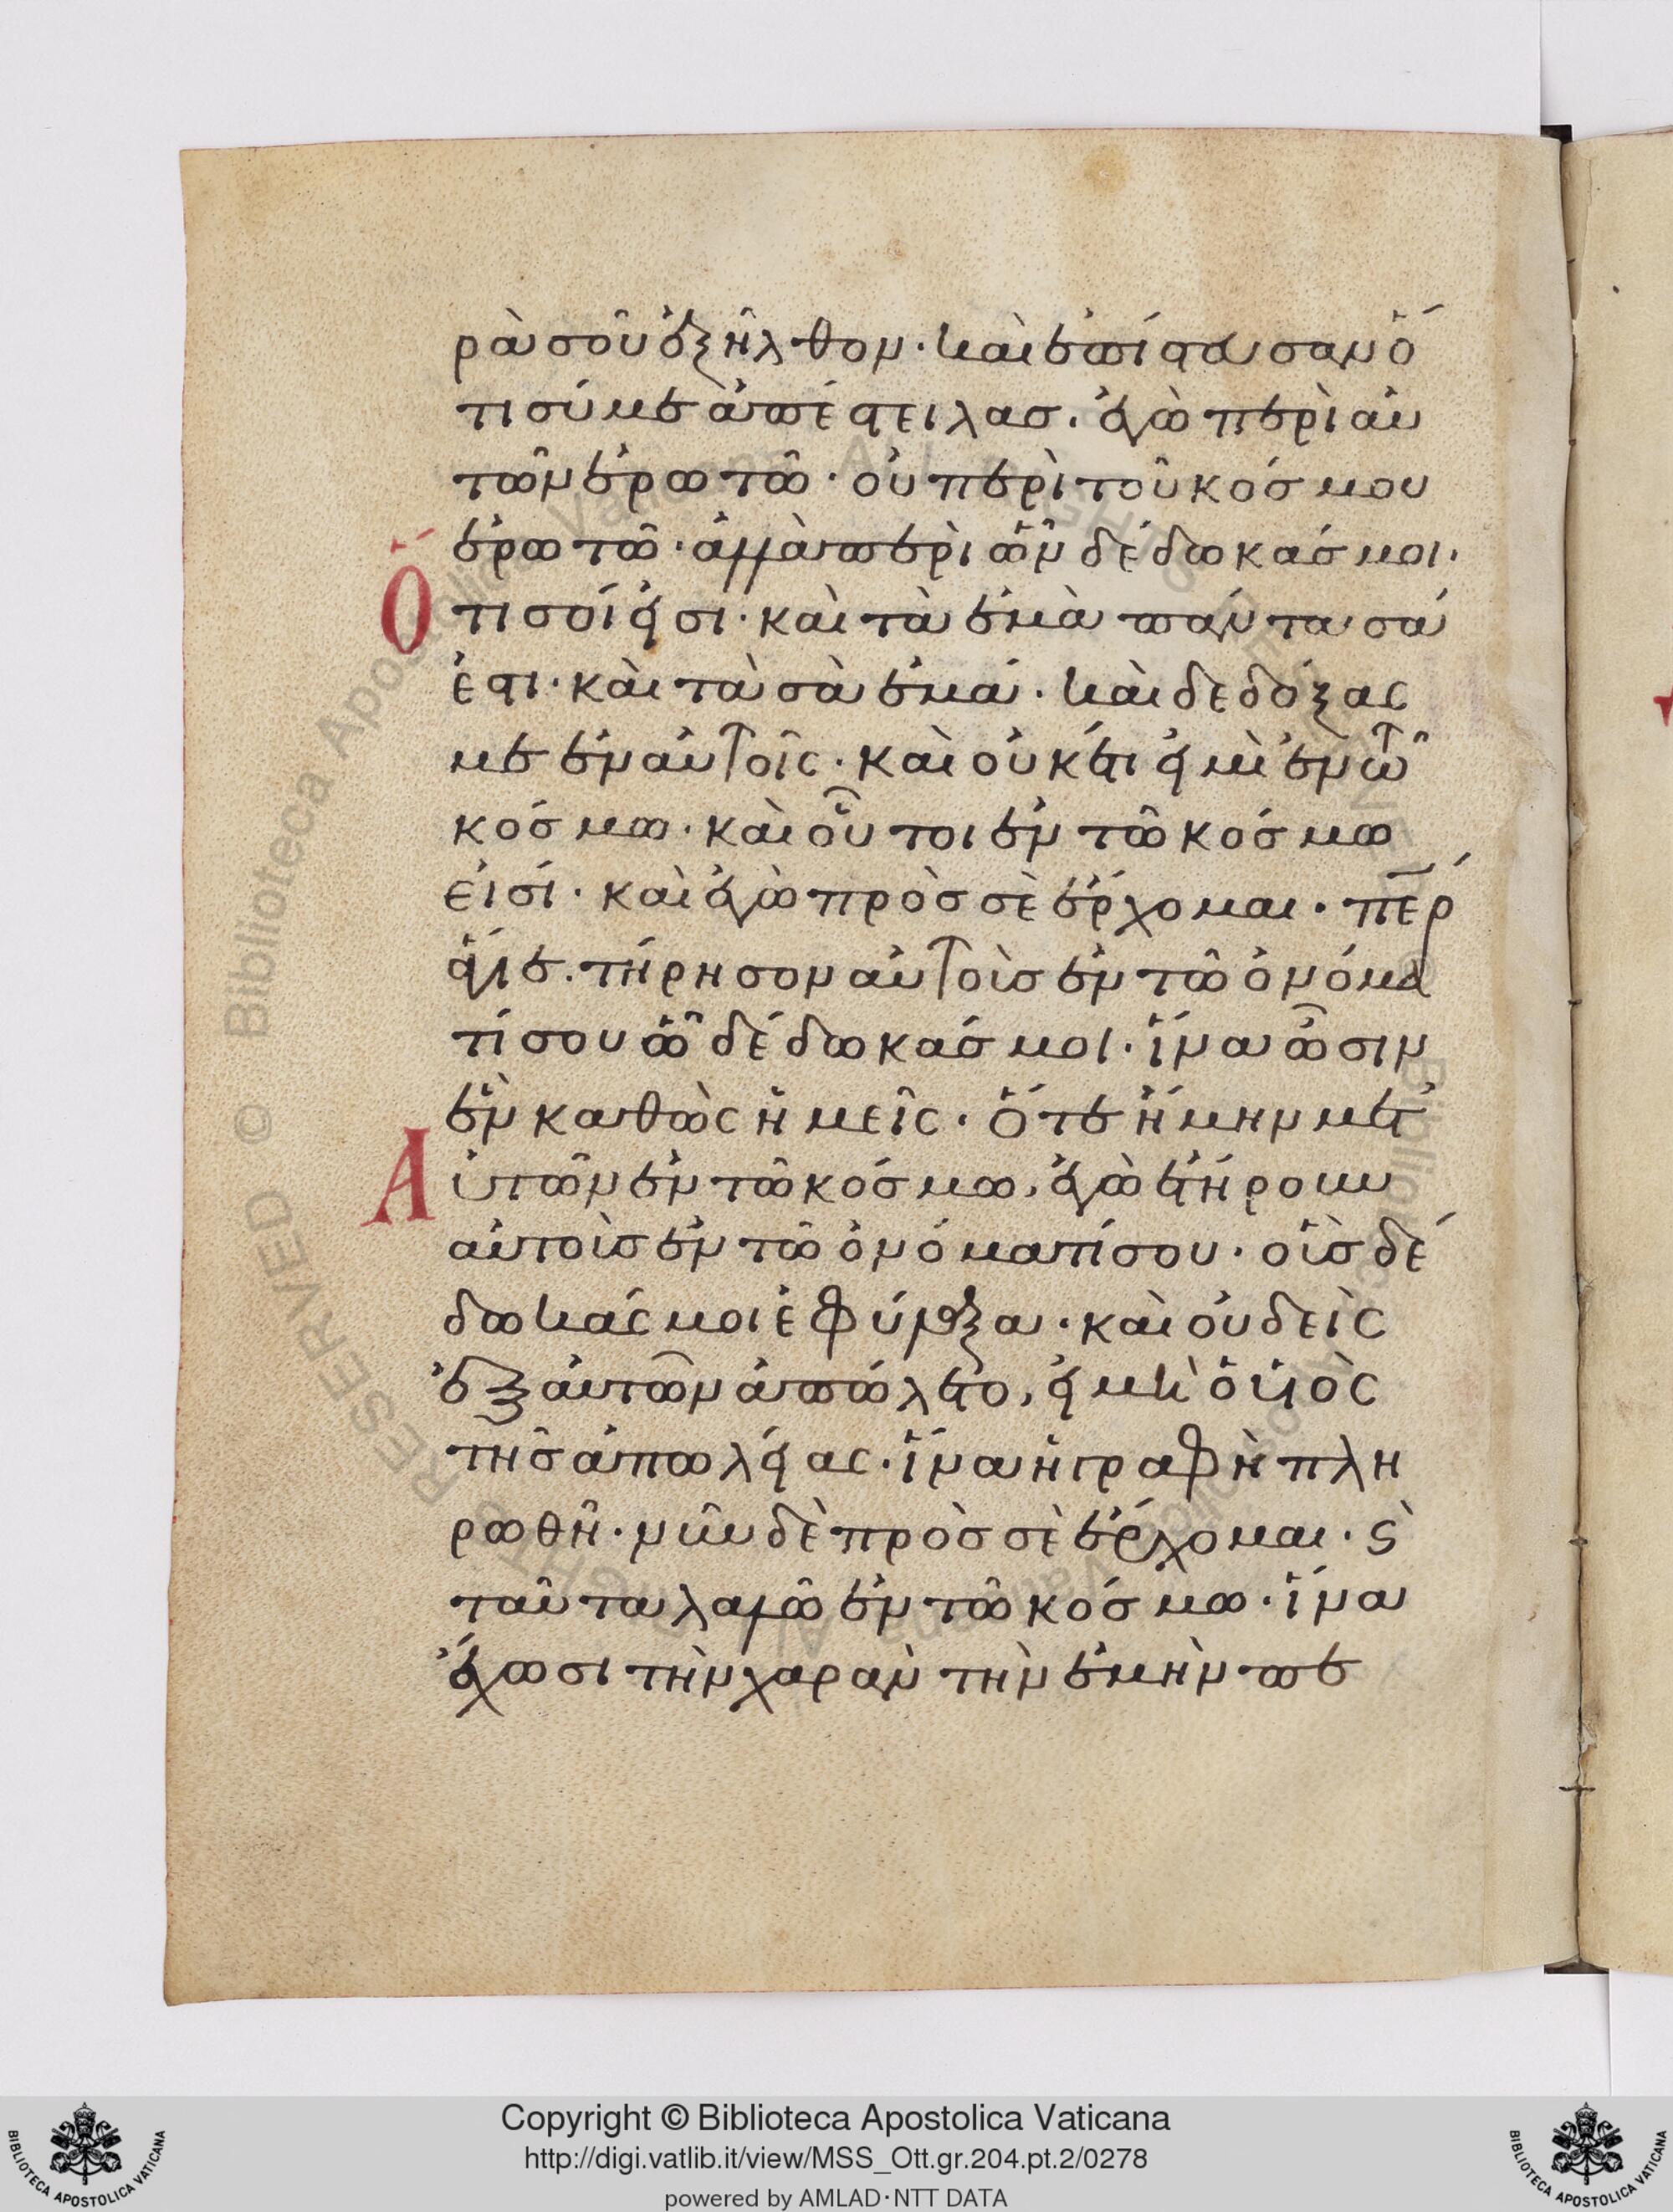 ρὰ σοῦ ἐξῆλθον· καὶ ἐπίστευσαν ὅ
τι σύ με ἀπέστειλας. ἐγὼ περὶ αὐ
τῶν ἐρωτῶ· οὐ περὶ τοῦ κόσμου
ἐρωτῶ· ἀλλὰ περὶ ὧν δέδωκάς μοι·
Ὅτι σοί εἰσι· καὶ τὰ ἐμὰ πάντα σά
ἐστι· καὶ τὰ σὰ ἐμά· καὶ δεδόξας
με ἐν αὐτοῖς· καὶ οὐκέτι εἰμὶ ἐν τῶ
κόσμω· καὶ οὗτοι ἐν τῶ κόσμω
εἰσί· καὶ ἐγὼ πρὸς σὲ ἔρχομαι· πε̅ρ
ἅγιε. τήρησον αὐτοὺς ἐν τῶ ὀνόμα
τί σου ὧ δέδωκάς μοι· ἵνα ὦσιν
ἓν καθὼς ἡμεῖς· ὅτε ἤμην μετ
Αὐτῶν ἐν τῶ κόσμω, ἐγὼ ἐτήρουν
αὐτοὺς ἐν τῶ ὀνόματί σου· οὓς δέ
δωκάς μοι ἐφύλαξα· καὶ οὐδεὶς
ἐξ αὐτῶν ἀπώλετο, εἰ μὴ ὁ υἱὸς
τῆς ἀπωλείας· ἵνα ἡ γραφὴ πλη
ρωθῆ· νῦν δὲ πρὸς σὲ ἔρχομαι· ϗ
ταῦτα λαλῶ ἐν τῶ κόσμω· ἵνα
ἔχωσι τὴν χαρὰν τὴν ἐμὴν πε
Copyright © Biblioteca Apostolica Vaticana
http://digi.vatlib.it/view/MSS_Ott.gr.204.pt.2/0278
powered by AMLAD·NTT DATA
BIBLIOTECA APOSTOLICA VATICANA
BIBLIOTECA APOSTOLICA VATICANA